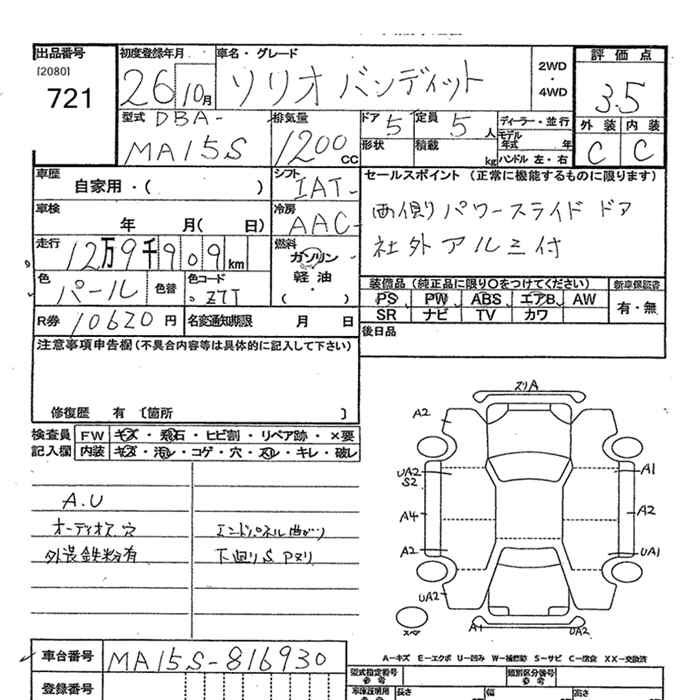 出品番号 初度登録年月 車名・グレード 評価点
[2080]
721 26 10月 ソリオ バンディット 2WD・4WD 3.5
型式 DBA- 排気量 ドア 5 定員 5 人 ディーラー・並行 外装 内装
MA15S 1200 CC 形状 積載 kg モデル年式 年 C C
ハンドル 左・右
車歴 シフト セールスポイント (正常に機能するものに限ります)
自家用・( ) IAT-
両側りパワースライドドア
車検 年 月( 日) 冷房 AAC-
社外アルミ付
走行 12万9千909km 燃料 ガソリン・軽油・( )
色 パール 色替 色コード Z7T
装備品 (純正品に限り○をつけてください) 新車保証書
PS PW ABS エアB AW 有・無
SR ナビ TV カワ
R券 10620円 名変通知期限 月 日
後日品
注意事項申告欄(不具合内容等は具体的に記入して下さい)
修復歴 有 〔箇所 〕
検査員 FW キズ・飛石・ヒビ割・リペア跡・×要
記入欄 内装 キズ・汚レ・コゲ・穴・スレ・キレ・破レ
A.U
オーディオス穴 エンドパネル曲がり
外装鉄粉有 下廻りS Pヌリ
スリA
A2
UA2 A1
S2
A4 A2
A2 UA1
UA2
A1 UA2
スペア
A-キズ E-エクボ U-凹み W-補修跡 S-サビ C-腐食 XX-交換済
車台番号 MA15S-816930
型式指定番号 参考 類別区分番号 参考
登録番号 長さ 幅 高さ